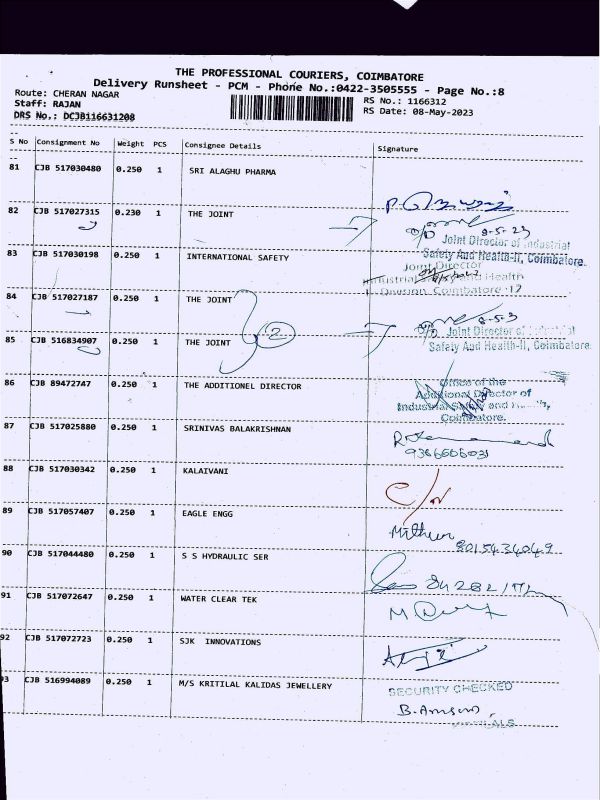 THE PROFESSIONAL COURIERS, COIMBATORE
Delivery Runsheet - PCM - Phone No.:0422-3505555 - Page No.:8
Route: CHERAN NAGAR
Staff: RAJAN
DRS No.: DCJB116631208
RS No.: 1166312
RS Date: 08-May-2023
S No Consignment No Weight PCS Consignee Details Signature
81 CJB 517030480 0.250 1 SRI ALAGHU PHARMA
82 CJB 517027315 0.230 1 THE JOINT
8-5-23
Joint Director of Industrial
Safety And Health-II, Coimbatore.
83 CJB 517030198 0.250 1 INTERNATIONAL SAFETY
Joint Director
Industrial Safety and Health
Division, Coimbatore
84 CJB 517027187 0.250 1 THE JOINT
2
85 CJB 516834907 0.250 1 THE JOINT
Joint Director of Industrial
Safety And Health-II, Coimbatore.
86 CJB 89472747 0.250 1 THE ADDITIONEL DIRECTOR
Office of the
Additional Director of
Industrial Safety and
Coimbatore.
87 CJB 517025880 0.250 1 SRINIVAS BALAKRISHNAN
88 CJB 517030342 0.250 1 KALAIVANI
C/N
89 CJB 517057407 0.250 1 EAGLE ENGG
Mithun 8015434049
90 CJB 517044480 0.250 1 S S HYDRAULIC SER
91 CJB 517072647 0.250 1 WATER CLEAR TEK
92 CJB 517072723 0.250 1 SJK INNOVATIONS
93 CJB 516994089 0.250 1 M/S KRITILAL KALIDAS JEWELLERY
SECURITY CHECKED